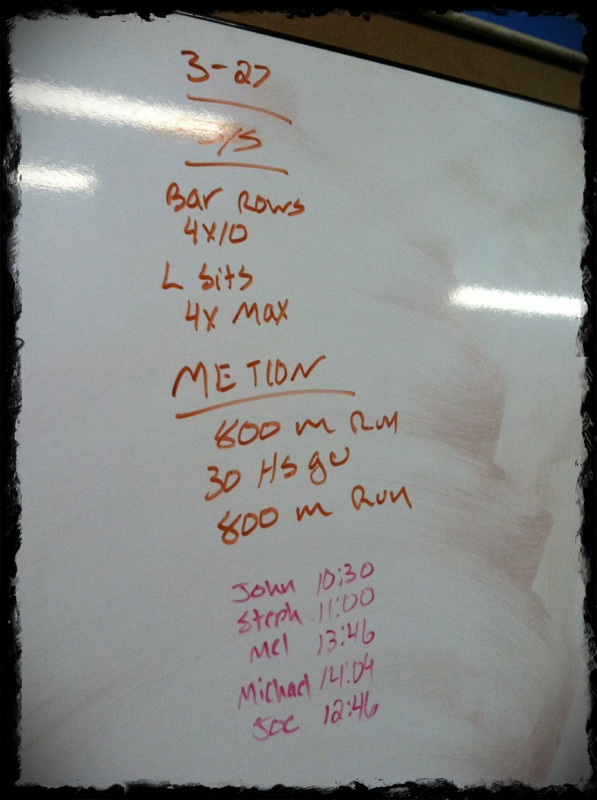 3-27
Bar Rows
4x10
L Sits
4x Max
METCON
800 m Run
30 HSPU
800 m Run
John 10:30
Steph 11:00
Mel 13:46
Michael 14:04
Joe 12:46